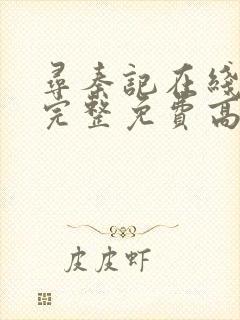 尋秦記在綫
完整免費高
皮皮虾